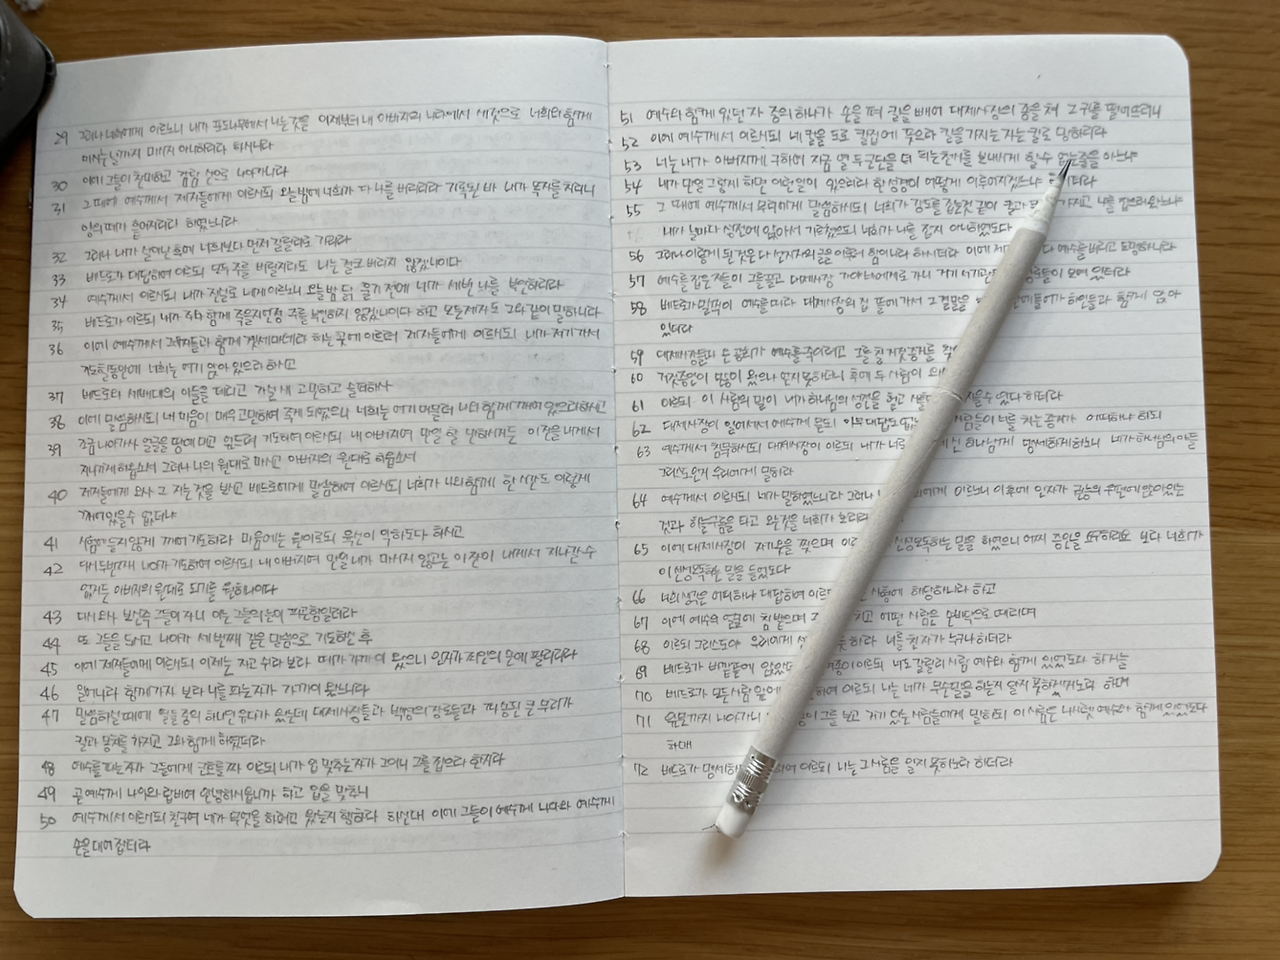 29 그러나 너희에게 이르노니 내가 포도나무에서 나는 것을 이제부터 내 아버지의 나라에서 새것으로 너희와 함께
마시는 날까지 마시지 아니하리라 하시니라
30 이에 그들이 찬미하고 감람 산으로 나아가니라
31 그 때에 예수께서 제자들에게 이르시되 오늘 밤에 너희가 다 나를 버리리라 기록된 바 내가 목자를 치리니
양의 떼가 흩어지리라 하였느니라
32 그러나 내가 살아난 후에 너희보다 먼저 갈릴리로 가리라
33 베드로가 대답하여 이르되 모두 주를 버릴지라도 나는 결코 버리지 않겠나이다
34 예수께서 이르시되 내가 진실로 네게 이르노니 오늘 밤 닭 울기 전에 네가 세 번 나를 부인하리라
35 베드로가 이르되 내가 주와 함께 죽을지언정 주를 부인하지 않겠나이다 하고 모든 제자도 그와 같이 말하니라
36 이에 예수께서 제자들과 함께 겟세마네라 하는 곳에 이르러 제자들에게 이르시되 내가 저기 가서
기도할 동안에 너희는 여기 앉아 있으라 하시고
37 베드로와 세베대의 아들을 데리고 가실새 고민하고 슬퍼하사
38 이에 말씀하시되 내 마음이 매우 고민하여 죽게 되었으니 너희는 여기 머물러 나와 함께 깨어 있으라 하시고
39 조금 나아가사 얼굴을 땅에 대고 엎드려 기도하여 이르시되 내 아버지여 만일 할 만하시거든 이 잔을 내게서
지나가게 하옵소서 그러나 나의 원대로 마시고 아버지의 원대로 하옵소서
40 제자들에게 오사 그 자는 것을 보시고 베드로에게 말씀하여 이르시되 너희가 나와 함께 한 시간도 이렇게
깨어 있을 수 없더냐
41 시험에 들지 않게 깨어 기도하라 마음에는 원이로되 육신이 약하도다 하시고
42 다시 두번째 나아가 기도하여 이르시되 내 아버지여 만일 내가 마시지 않고는 이 잔이 내게서 지나갈 수
없거든 아버지의 원대로 되기를 원하나이다
43 다시 와서 보신즉 그들이 자니 이는 그들의 눈이 피곤함일러라
44 또 그들을 두시고 나아가 세 번째 같은 말씀으로 기도하신 후
45 이에 제자들에게 이르시되 이제는 자고 쉬라 보라 때가 가까이 왔으니 인자가 죄인의 손에 팔리리라
46 일어나라 함께 가자 보라 나를 파는 자가 가까이 왔느니라
47 말씀하실 때에 열둘 중의 하나인 유다가 왔는데 대제사장들과 백성의 장로들과 파송된 큰 무리가
칼과 몽치를 가지고 그와 함께 하였더라
48 예수를 파는 자가 그들에게 군호를 짜 이르되 내가 입 맞추는 자가 그이니 그를 잡으라 한지라
49 곧 예수께 나아와 랍비여 안녕하시옵니까 하고 입을 맞추니
50 예수께서 이르시되 친구여 네가 무엇을 하려고 왔는지 행하라 하신대 이에 그들이 예수께 나아와 예수께
손을 대어 잡더라
51 예수와 함께 있던 자 중의 하나가 손을 펴 칼을 빼어 대제사장의 종을 쳐 그 귀를 떨어뜨리니
52 이에 예수께서 이르시되 네 칼을 도로 칼집에 꽂으라 칼을 가지는 자는 칼로 망하리라
53 너는 내가 아버지께 구하여 지금 열 두 군단 더 되는 천사를 보내시게 할 수 없는 줄을 아느냐
54 내가 만일 그렇게 하면 이런 일이 있으리라 한 성경이 어떻게 이루어지겠느냐 하시더라
55 그 때에 예수께서 무리에게 말씀하시되 너희가 강도를 잡는 것 같이 칼과 가지고 나를 잡으러 왔느냐
내가 날마다 성전에 앉아서 가르쳤으되 너희가 나를 잡지 아니하였도다
56 그러나 이렇게 된 것은 다 선지자의 글을 이루려 함이니라 하시더라 이에 제 다 예수를 버리고 도망하니라
57 예수를 잡은 자들이 그를 끌고 대제사장 가야바에게로 가니 거기 서기관 장로들이 모여 있더라
58 베드로가 멀찍이 예수를 따라 대제사장의 집 뜰에 가서 그 결말을 안에 들어가 하인들과 함께 앉아
있더라
59 대제사장들과 온 공회가 예수를 죽이려고 그를 칠 거짓 증거를
60 거짓 증인이 많이 왔으나 얻지 못하더니 후에 두 사람이 와
61 이르되 이 사람의 말이 내가 하나님의 성전을 헐고 사흘 지을 수 있다 하더라
62 대제사장이 일어서서 예수께 묻되 아무 대답도 없 사람들이 너를 치는 증거가 어떠하냐 하되
63 예수께서 침묵하시되 대제사장이 이르되 내가 너로 계신 하나님께 맹세하게 하노니 네가 하나님의 아들
그리스도인지 우리에게 말하라
64 예수께서 이르시되 네가 말하였느니라 그러나 너희에게 이르노니 이후에 인자가 권능의 우편에 앉아 있는
것과 하늘 구름을 타고 오는 것을 너희가 보리라
65 이에 대제사장이 자기 옷을 찢으며 이르 신성모독하는 말을 하였으니 어찌 증인을 요구하리요 보라 너희가
이 신성모독하는 말을 들었도다
66 너희 생각은 어떠하냐 대답하여 이르되 사형에 해당하니라 하고
67 이에 예수의 얼굴에 침 뱉으며 치고 어떤 사람은 손바닥으로 때리며
68 이르되 그리스도야 우리에게 선 하라 너를 친 자가 누구냐 하더라
69 베드로가 바깥 뜰에 앉았 여종이 이르되 너도 갈릴리 사람 예수와 함께 있었도다 하거늘
70 베드로가 모든 사람 앞에 하여 이르되 나는 네가 무슨 말을 하는지 알지 못하겠노라 하며
71 앞문까지 나아가니 종이 그를 보고 거기 있는 사람들에게 말하되 이 사람은 나사렛 예수와 함께 있었도다
하매
72 베드로가 맹세하 하여 이르되 나는 그 사람을 알지 못하노라 하더라